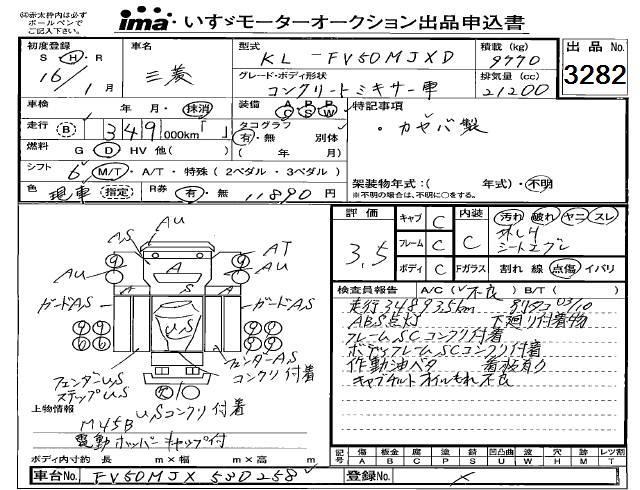 ㊟赤太枠内は必ず
ボールペンで
ご記入下さい。
ima・いすゞモーターオークション出品申込書
初度登録 S・H・R 16年/1月
車名 三菱
型式 KL-FV50MJXD
積載(kg) 9770
出品No. 3282
グレード・ボディ形状 コンクリートミキサー車
排気量(cc) 21200
車検 年・月・抹消
装備 A/C P/S P/W
特記事項
・カヤバ製
走行 B 349,000km
タコグラフ 有・無 別体
( 年 月)
燃料 G D HV 他( )
シフト 6 M/T・A/T・特殊(2ペダル・3ペダル)
架装物年式:( 年式)・不明
※不明の場合は、不明に○をする。
色 現車 指定 R券 有・無 11890円
評価 3.5
キャブ C
フレーム C
ボディ C
内装 C
汚れ 破れ ヤニ スレ
シートエプレ
Fガラス 割れ 線 点傷 イバリ
検査員報告 A/C(✓不良 )B/T( )
走行348935km
ABS点灯 下廻り付着物
フレームSCコンクリ付着
ボディフレームSCコンクリ付着
作動油ベタ 看板有り
キャブチルトオイルもれ不良
AU
A,S
AT
AU
AU
A
A
S
A
ガードA,S
ガードA,S
US
フェンダーA,S
コンクリ付着
フェンダーU,S
ステップU,S
U,Sコンクリ付着
上物情報
M45B
電動ホッパーキャップ付
ボディ内寸約 長 m×幅 m×高 m
記号 傷A 板金B 腐C 塗P 錆S 凹凸曲U 波W 穴H 跡M レツ割T
車台No. FV50MJX-530258
登録No.